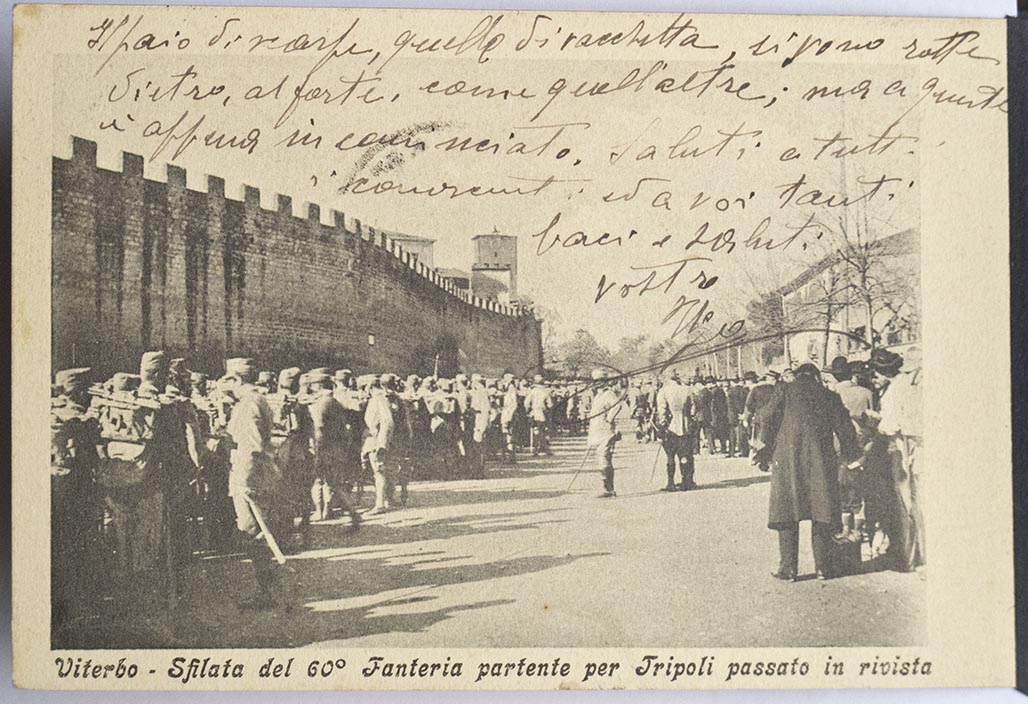 Il paio di scarpe, quelle di vacchetta, si sono rotte
dietro, al forte, come quell'altre; ma a queste
è appena incominciato. Saluti a tutti
i conoscenti ed a voi tanti
baci e saluti
vostro
Viterbo - Sfilata del 60° Fanteria partente per Tripoli passato in rivista